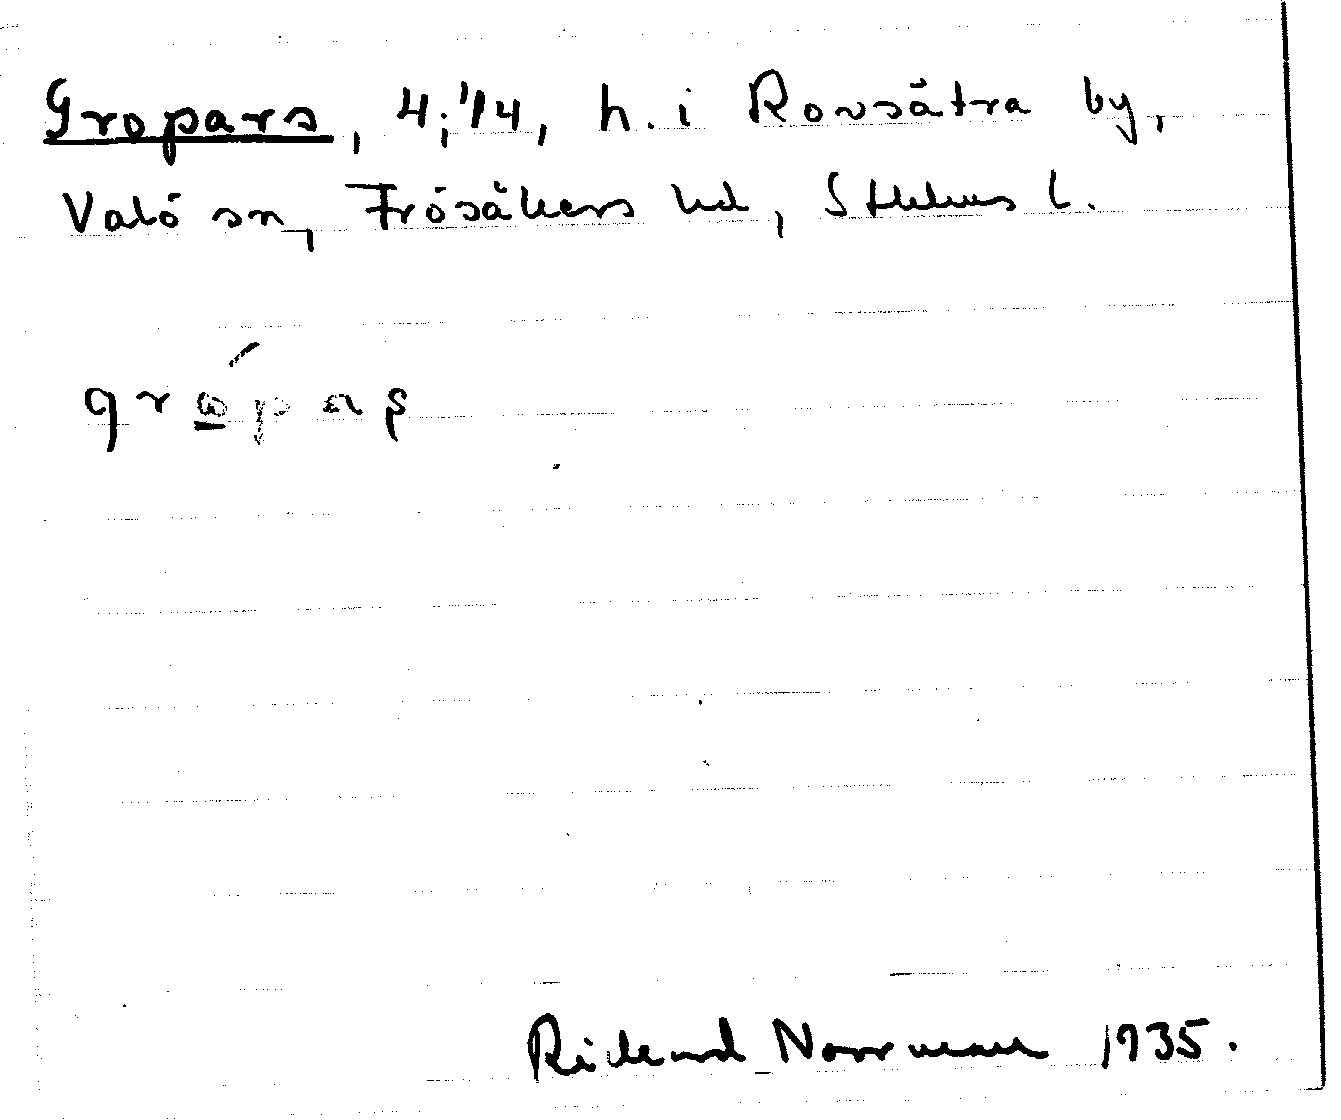 Gropars, 4;'14, h. i Rovsätra by,
Valö sn, Frösåkers hd, Sthlms l.
grώ̲pas̩
Rickard Norrman 1935.